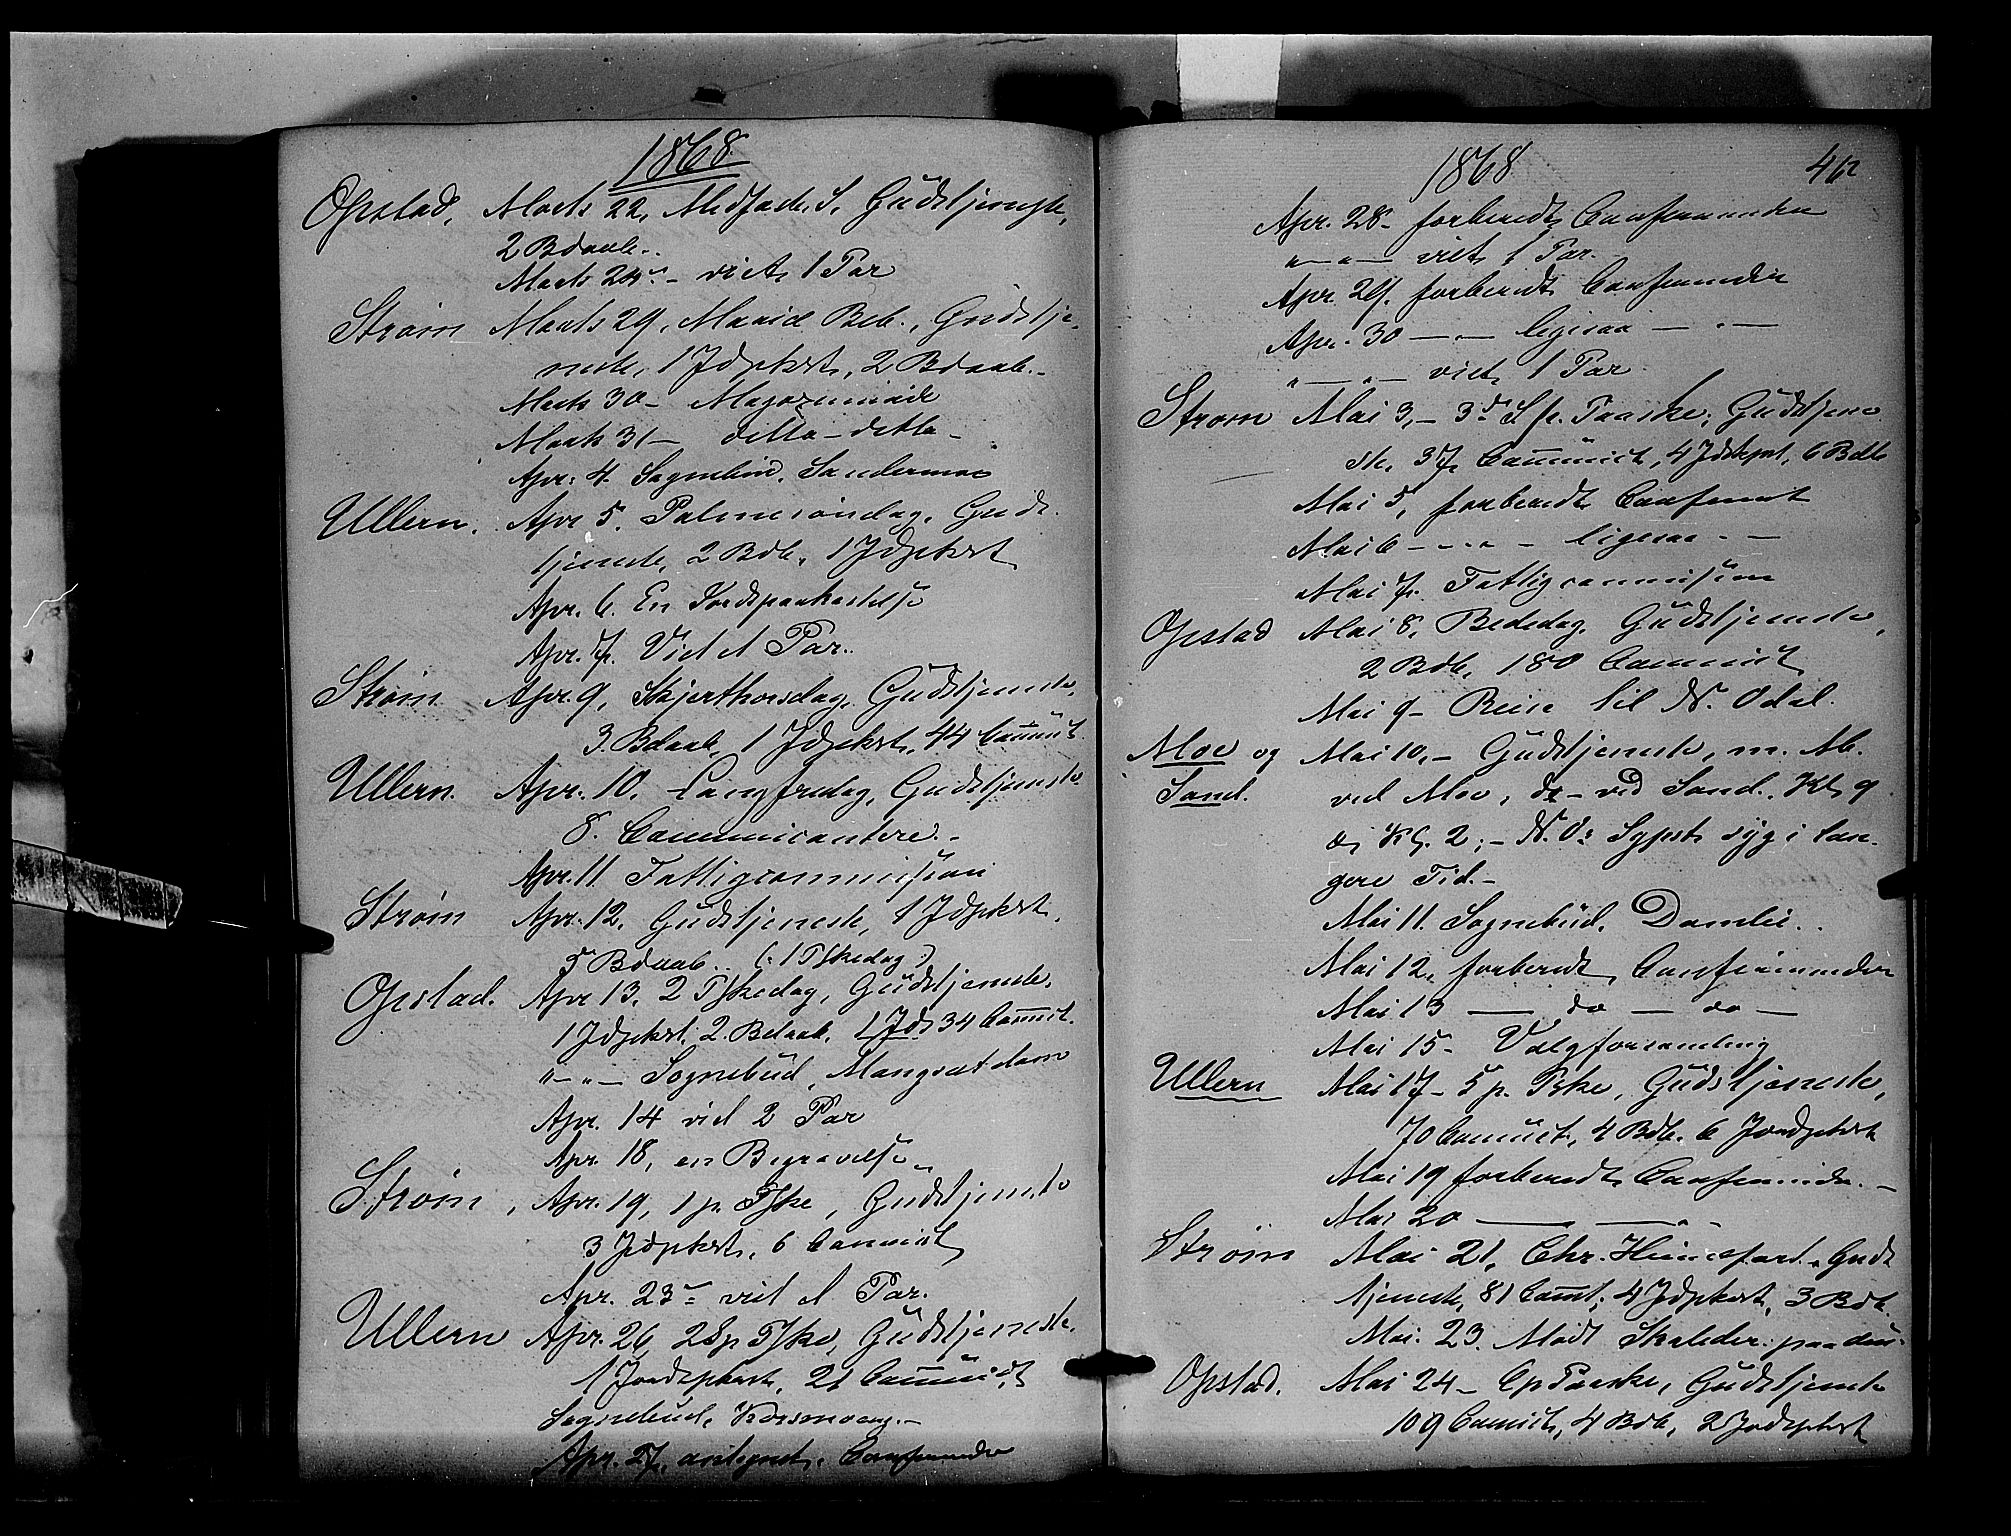 1868
Opstad, Marts 22, Midfaste S. Gudstjeneste,
2 Bdaab.
Marts 24 – viet 1 Par
Strøm Marts 29, Mariæ Beb., Gudstje-
neste, 1 Jdpkst, 2 Bdaab.
Marts 30 –
Marts 31 – ditto – ditto –
Apr. 4. Sognebud, Sandermoe
Ullern. Apr 5. Palmesøndag, Guds-
tjeneste, 2 Bdb. 1 Jdpkst
Apr. 6. En Jordspaakastelse
Apr. 7. Viet 1 Par.
Strøm Apr. 9, Skjerthorsdag, Gudstjeneste,
3 Bdaab, 1 Jdpkst, 44 Communict
Ullern. Apr. 10. Langfredag, Gudstjeneste
8. Communicantere. –
Apr. 11 Fattigcommission
Strøm Apr. 12, Gudstjeneste, 1 Jdpkst,
5 Bdaab. (1 Pskedag)
Opstad. Apr 13. 2 Pskedag, Gudstjeneste.
1 Jdpkst, 2 Bdaab, 34 Commct.
"–"– Sognebud,
Apr. 14 viet 2 Par
Apr. 18, en Begravelse
Strøm, Apr. 19, 1 p. Pske, Gudstjeneste
3 Jrdpkst, 6 Communict
Apr. 23 – viet 1 Par.
Ullern Apr. 26, 2 S p Pske, Gudstjeneste.
1 Jordspkst, 21 Communict
Sognebud, Korsmoeng. –
Apr. 27, antegnet, Confirmander
1868
Apr. 28 – forberedt Confirmander
"–"– viet 1 Par.
Apr 29. forberedt Confirmander
Apr. 30 – – ligesaa – " –
"–"– viet 1 Par.
Strøm Mai 3, – 3d S p. Paaske, Gudstjene
ste. 37 Communict, 4 Jdspkst, 6 Bdb
Mai 5, forberedt Confirmat
Mai 6 – – " – ligesaa – –
Mai 7. Fattigcommission
Opstad Mai 8, Bededag. Gudstjeneste,
2 Bdb, 180 Communict
Mai 9 – Reise til N. Odal.
Moe og Mai 10, – Gudstjeneste, m. M.
Sand. ved Moe, do – ved Sand. Kl 9
og Kl. 2; – N. O: Sgpst syg i læn-
gere Tid. –
Mai 11. Sognebud,
Mai 12, forberedt Confirmander
Mai 13 — do — do —
Mai 15 – Valgforsamling
Ullern Mai 17 – 5 p. Pske, Gudstjeneste,
70 Communict, 4 Bdb. 6 Jordpkst
Mai 19 forberedt Confirmander. –
Mai 20 — — " –
Strøm Mai 21, Chr. Himmelfart. Guds
tjeneste, 81 Commt, 4 Jdpkst, 3 Bdb.
Mai. 23. Mødt
Opstad. Mai 24 – 6 p Paaske, Gudstjeneste
109 Communict, 4 Bdb, 2 Jodspkst